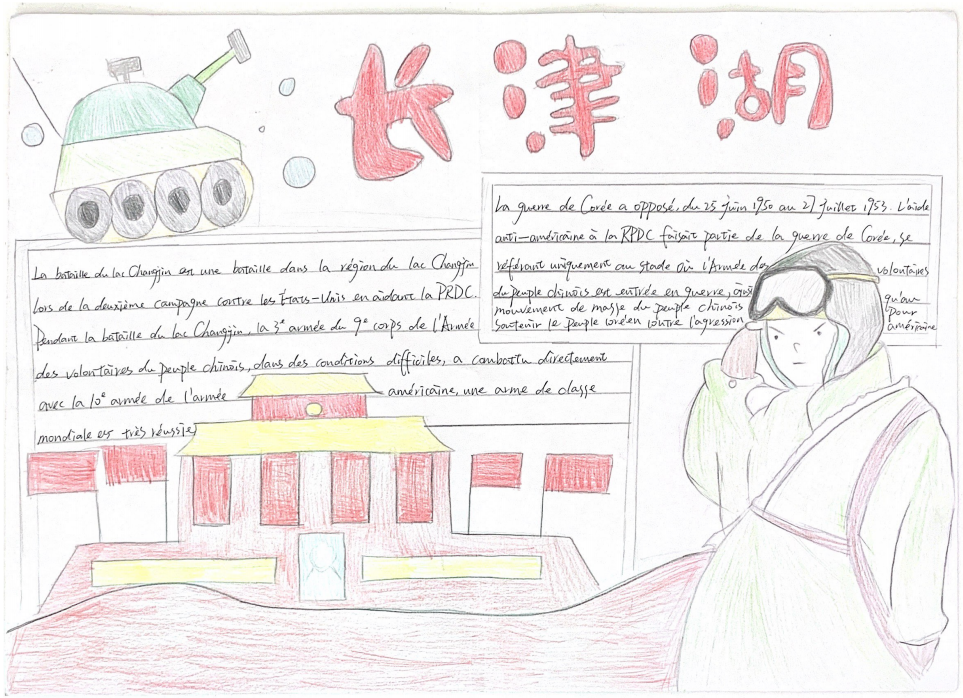 长津湖
La guerre de Corée a opposé, du 25 juin 1950 au 27 juillet 1953. L'aide
anti-américaine à la RPDC faisait partie de la guerre de Corée, se
référant uniquement au stade où l'Armée des volontaires
du peuple chinois est entrée en guerre, ainsi qu'au
mouvement de masse du peuple chinois pour
soutenir le peuple coréen contre l'agression américaine
La bataille du lac Changjin est une bataille dans la région du lac Changjin
lors de la deuxième campagne contre les États-Unis en aidant la PRDC.
Pendant la bataille du lac Changjin, la 3e armée du 9e corps de l'Armée
des volontaires du peuple chinois, dans des conditions difficiles, a combattu directement
avec la 10e armée de l'armée américaine, une arme de classe
mondiale es très réussie